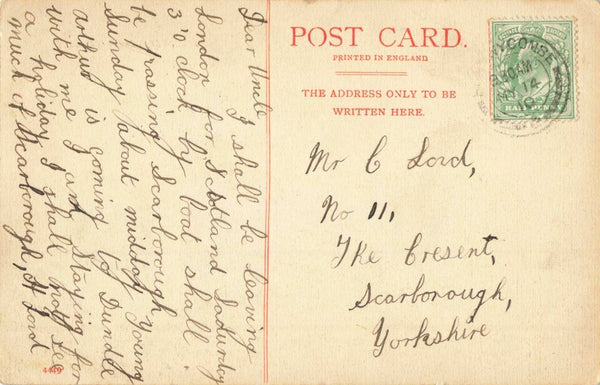 Dear Uncle
I shall be leaving
London for Scotland Saturday
3 o'clock by boat shall
be passing Scarborough
Sunday about midday Young
Arthur is going to Dundee
with me I am staying for
a holiday I shall not see
much of Scarborough, H Lord
4449
POST CARD.
PRINTED IN ENGLAND
THE ADDRESS ONLY TO BE
WRITTEN HERE.
Mr C Lord,
No 11,
The Cresent,
Scarborough,
Yorkshire
WYCOMBE
AM
14
10
HALFPENNY